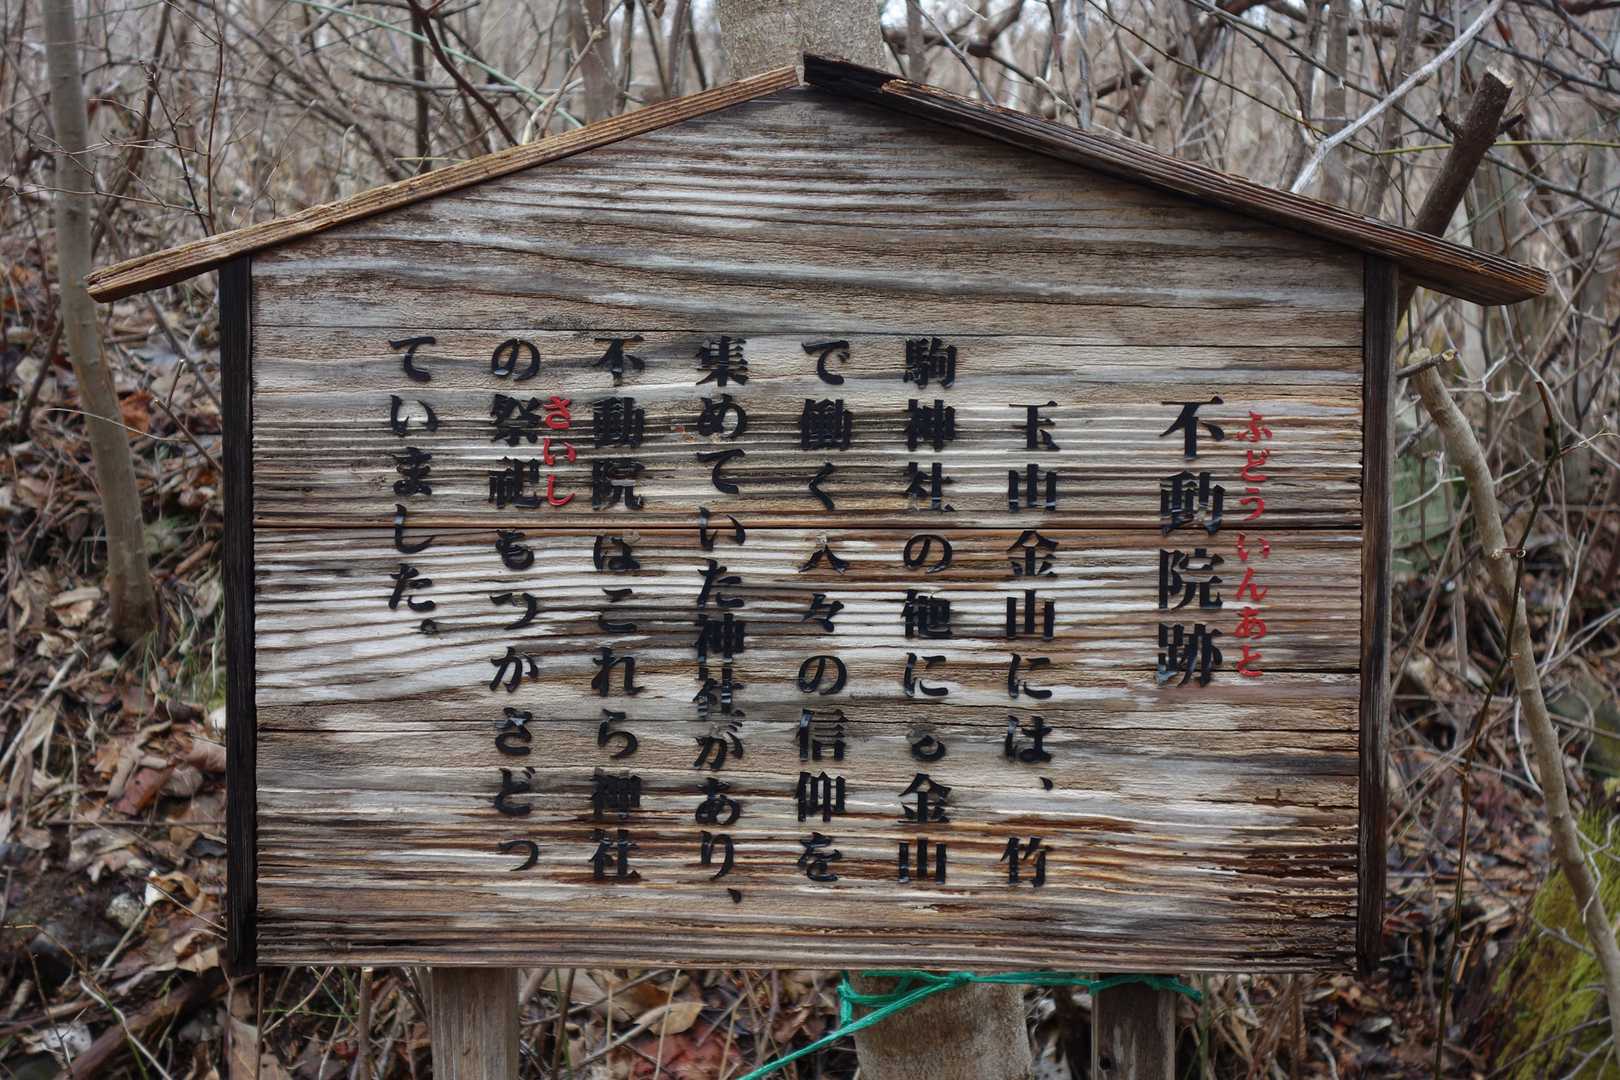 不動院跡
ふどういんあと
玉山金山には、竹
駒神社の他にも金山
で働く人々の信仰を
集めていた神社があり、
不動院はこれら神社
の祭祀もつかさどっ
さいし
ていました。